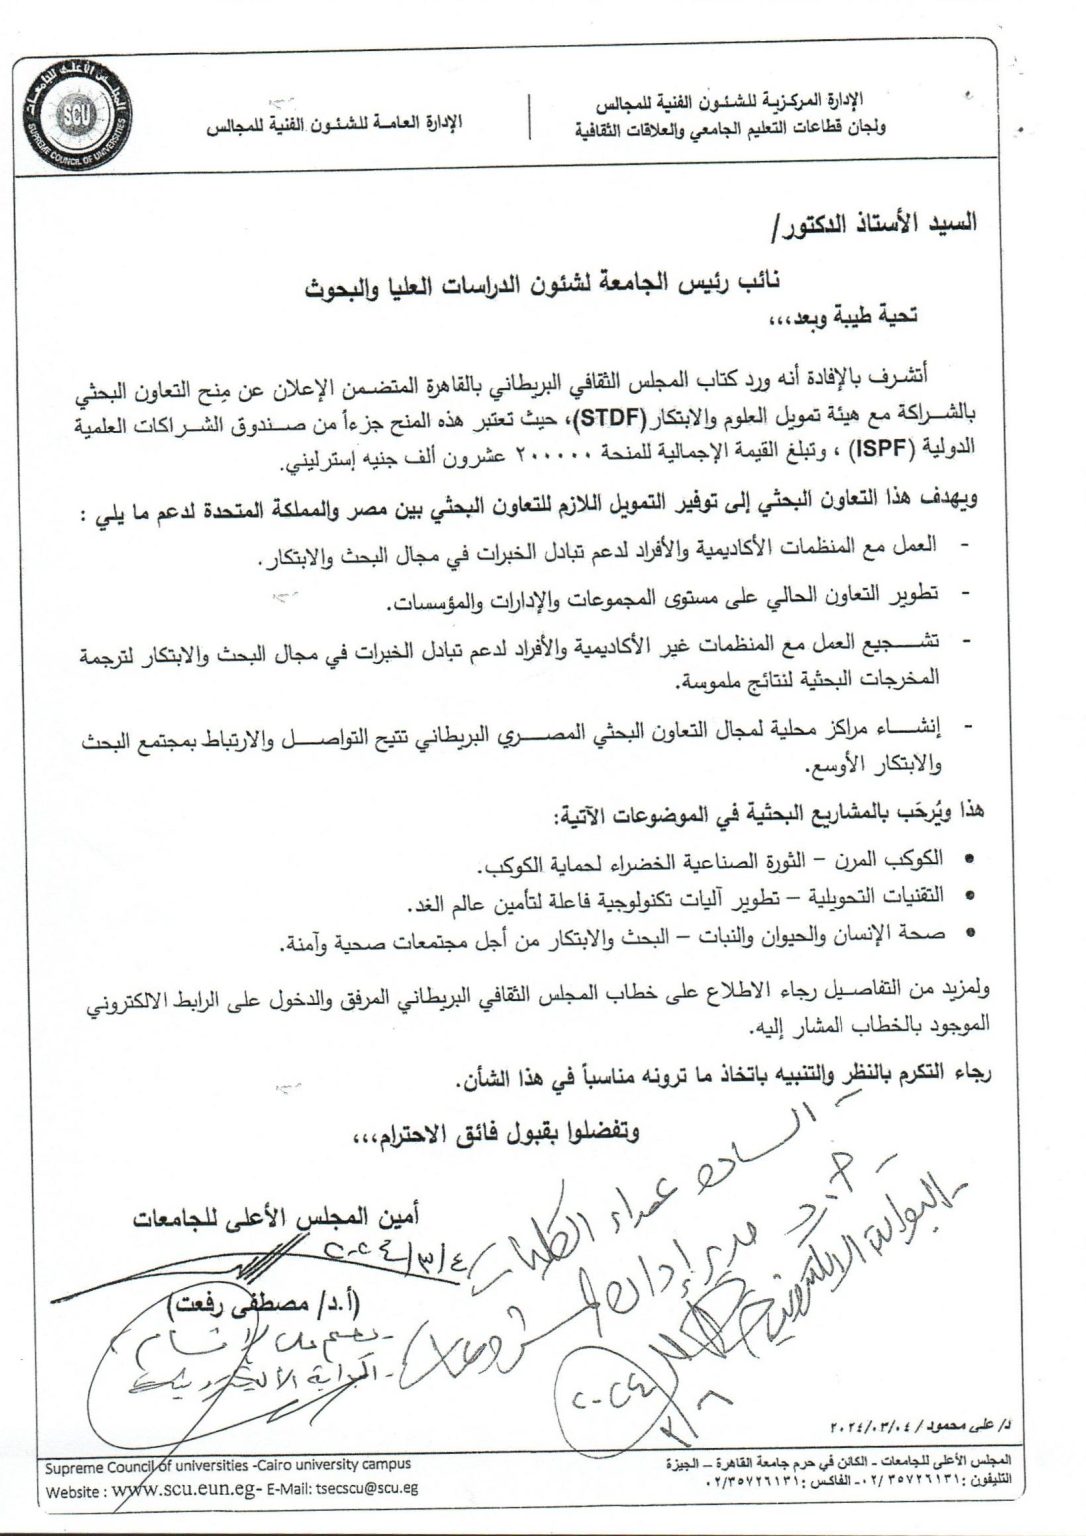 المجلس الأعلى للجامعات
SCU
SUPREME COUNCIL OF UNIVERSITIES
الإدارة المركزية للشئون الفنية للمجالس
ولجان قطاعات التعليم الجامعي والعلاقات الثقافية
الإدارة العامة للشئون الفنية للمجالس
السيد الأستاذ الدكتور/
نائب رئيس الجامعة لشئون الدراسات العليا والبحوث
تحية طيبة وبعد،،،
أتشرف بالإفادة أنه ورد كتاب المجلس الثقافي البريطاني بالقاهرة المتضمن الإعلان عن مِنح التعاون البحثي
بالشراكة مع هيئة تمويل العلوم والابتكار (STDF)، حيث تعتبر هذه المنح جزءاً من صندوق الشراكات العلمية
الدولية (ISPF) ، وتبلغ القيمة الإجمالية للمنحة ٢٠٠٠٠٠ عشرون ألف جنيه إسترليني.
ويهدف هذا التعاون البحثي إلى توفير التمويل اللازم للتعاون البحثي بين مصر والمملكة المتحدة لدعم ما يلي :
- العمل مع المنظمات الأكاديمية والأفراد لدعم تبادل الخبرات في مجال البحث والابتكار.
- تطوير التعاون الحالي على مستوى المجموعات والإدارات والمؤسسات.
- تشجيع العمل مع المنظمات غير الأكاديمية والأفراد لدعم تبادل الخبرات في مجال البحث والابتكار لترجمة
المخرجات البحثية لنتائج ملموسة.
- إنشاء مراكز محلية لمجال التعاون البحثي المصري البريطاني تتيح التواصل والارتباط بمجتمع البحث
والابتكار الأوسع.
هذا ويُرحَب بالمشاريع البحثية في الموضوعات الآتية:
• الكوكب المرن – الثورة الصناعية الخضراء لحماية الكوكب.
• التقنيات التحويلية – تطوير آليات تكنولوجية فاعلة لتأمين عالم الغد.
• صحة الإنسان والحيوان والنبات – البحث والابتكار من أجل مجتمعات صحية وآمنة.
ولمزيد من التفاصيل رجاء الاطلاع على خطاب المجلس الثقافي البريطاني المرفق والدخول على الرابط الالكتروني
الموجود بالخطاب المشار إليه.
رجاء التكرم بالنظر والتنبيه باتخاذ ما ترونه مناسباً في هذا الشأن.
وتفضلوا بقبول فائق الاحترام،،،
- السادة عمداء الكليات
مدير إدارة المشروعات
- البوابة الالكترونية
٢٠٢٤
٣/٨
أمين المجلس الأعلى للجامعات
٢٠٢٤/٣/٤
(أ.د/ مصطفى رفعت)
- البوابة الألكترونية
د/ على محمود / ٢٠٢٤/٠٣/٠٤
المجلس الأعلى للجامعات - الكائن في حرم جامعة القاهرة – الجيزة
التليفون : ٠٢/٣٥٧٢٦١٣١ - الفاكس : ٠٢/٣٥٧٢٦١٣١
Supreme Council of universities -Cairo university campus
Website : www.scu.eun.eg- E-Mail: tsecscu@scu.eg